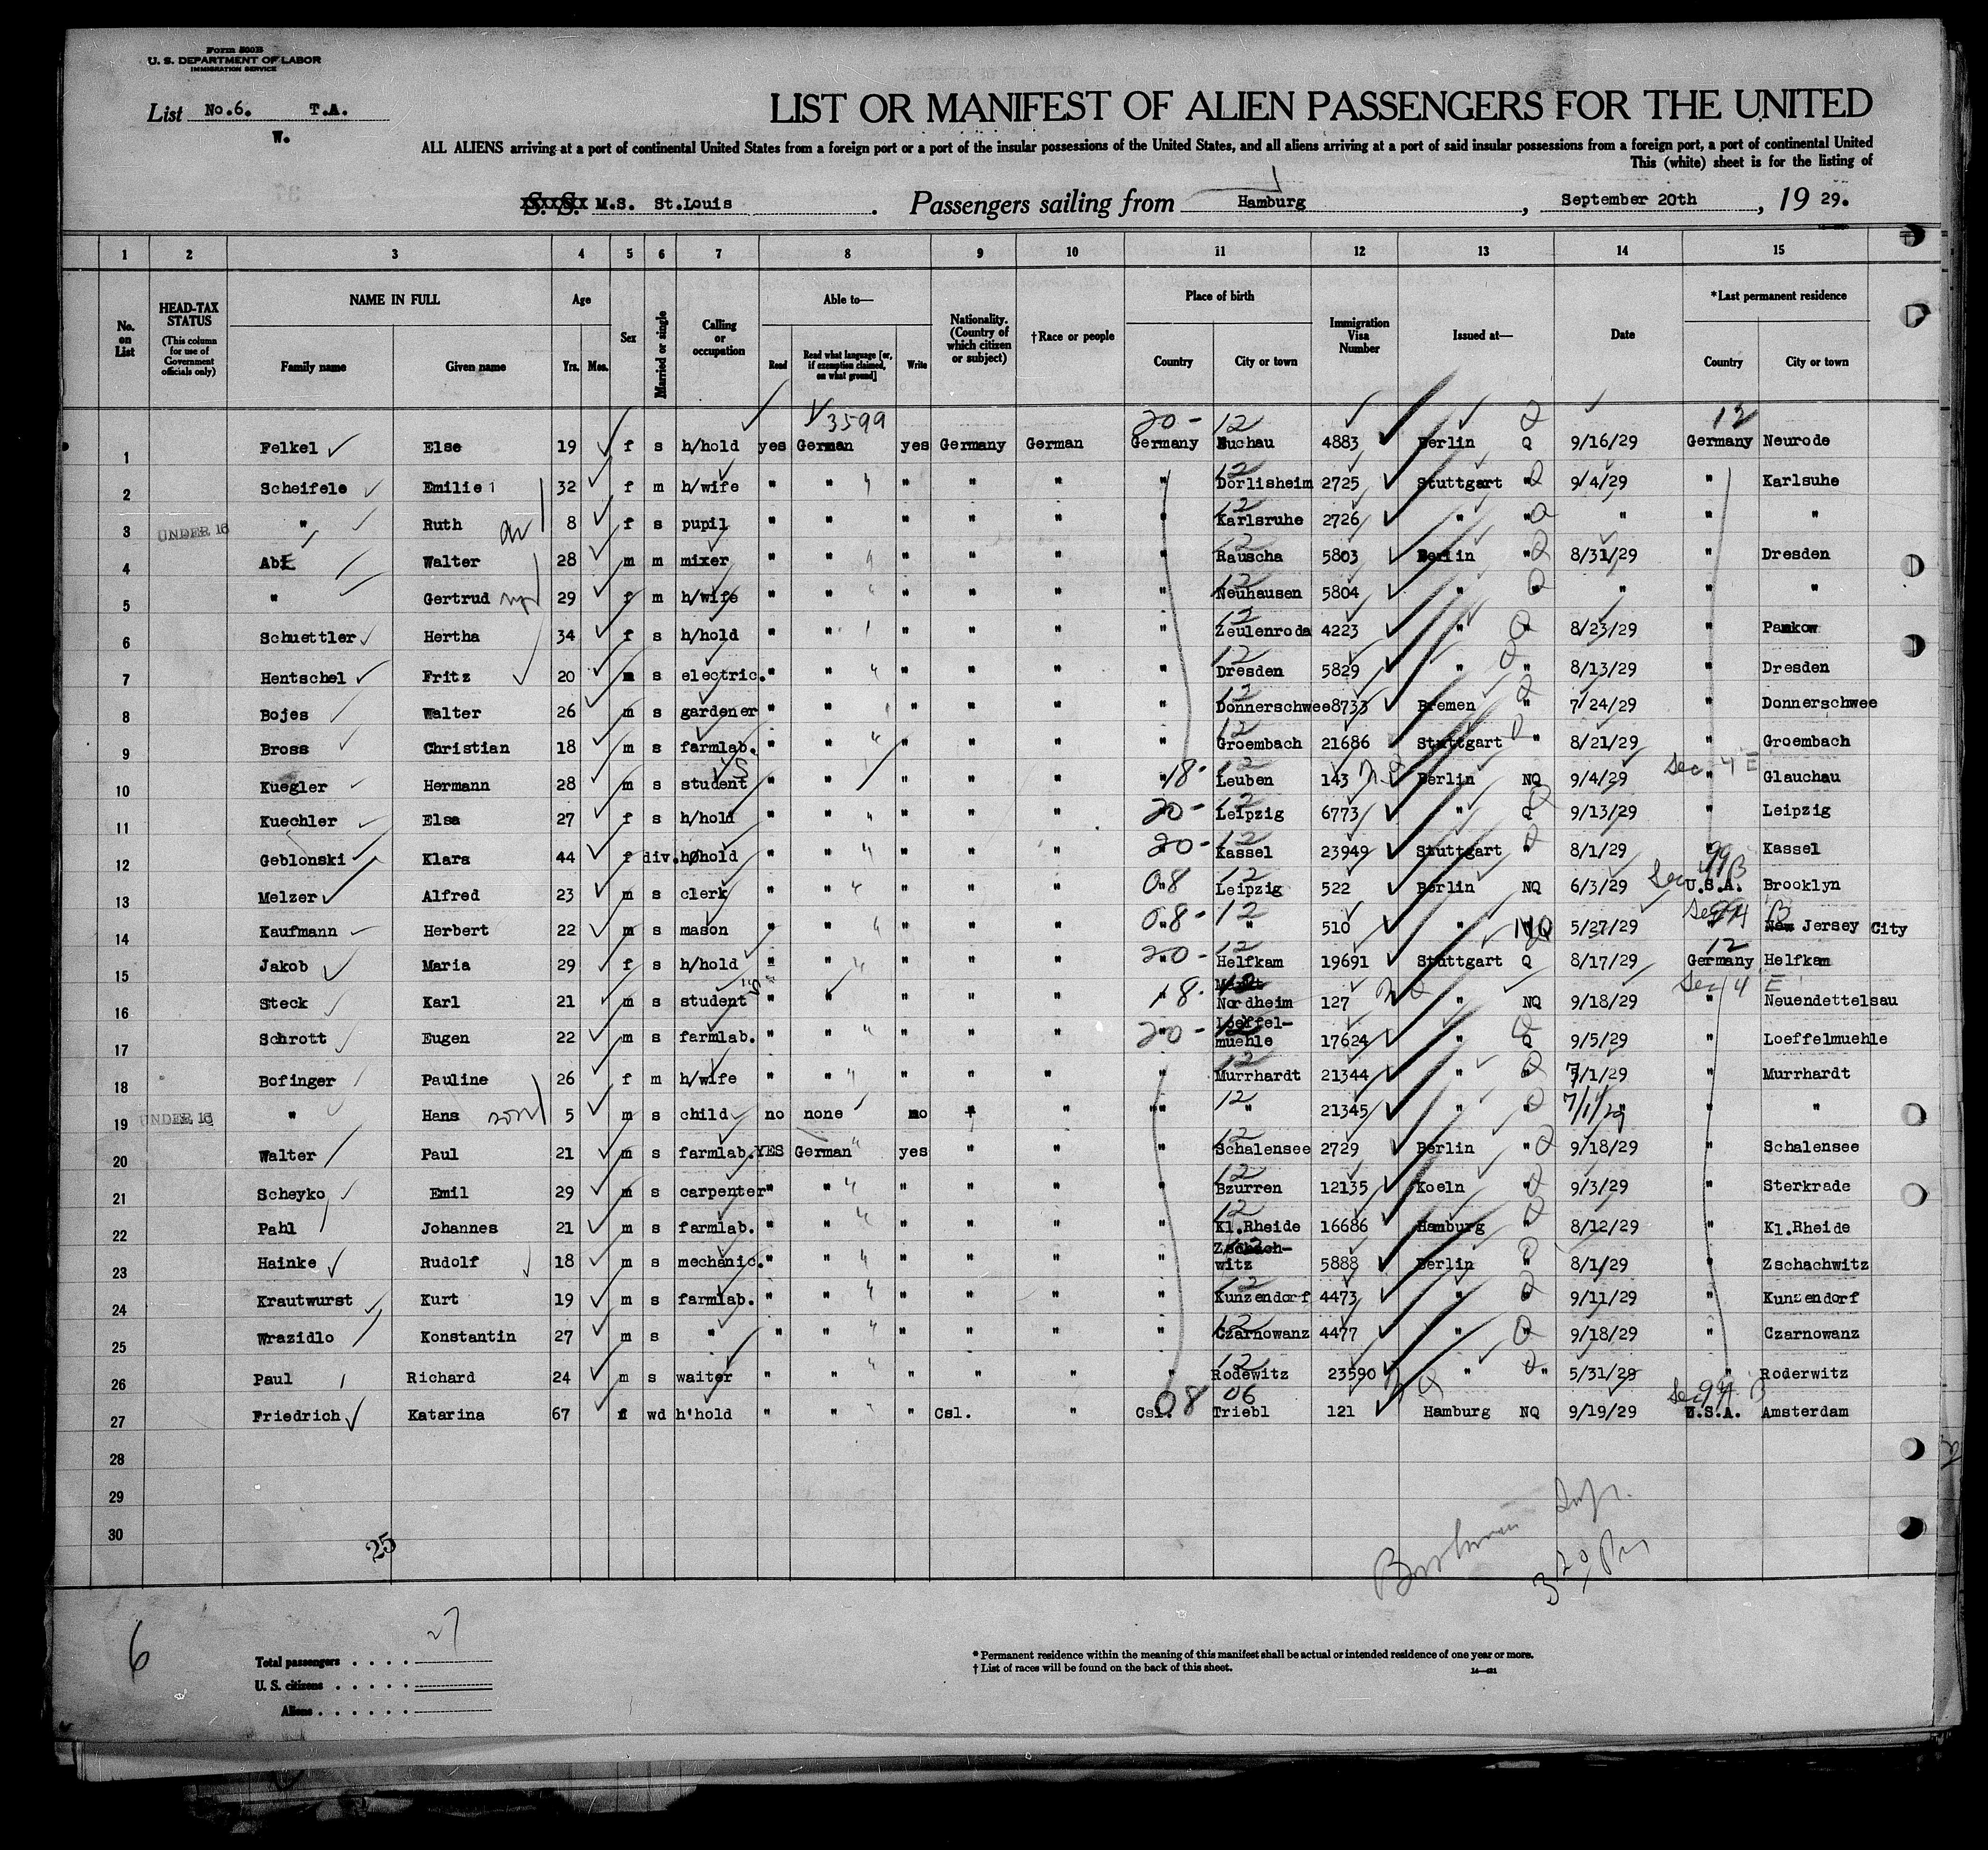 Form 500B
U. S. DEPARTMENT OF LABOR
IMMIGRATION SERVICE
List No.6. T.A.
W.
LIST OR MANIFEST OF ALIEN PASSENGERS FOR THE UNITED
ALL ALIENS arriving at a port of continental United States from a foreign port or a port of the insular possessions of the United States, and all aliens arriving at a port of said insular possessions from a foreign port, a port of continental United
This (white) sheet is for the listing of
S. S. M.S. St.Louis . Passengers sailing from Hamburg , September 20th , 19 29.
1 2 3 4 5 6 7 8 9 10 11 12 13 14 15
No. on List
HEAD-TAX STATUS (This column for use of Government officials only)
NAME IN FULL Family name Given name
Age Yrs. Mos.
Sex
Married or single
Calling or occupation
Able to— Read Read what language [or, if exemption claimed, on what ground] Write
Nationality. (Country of which citizen or subject)
†Race or people
Place of birth Country City or town
Immigration Visa Number
Issued at—
Date
*Last permanent residence Country City or town
3599 20 - 12 Q 12
1 Felkel Else 19 f s h/hold yes German yes Germany German Germany Buchau 4883 Berlin Q 9/16/29 Germany Neurode
2 Scheifele Emilie 32 f m h/wife " " " " " " 12 Dorlisheim 2725 Stuttgart " Q 9/4/29 " Karlsuhe
3 UNDER 16 " Ruth 8 f s pupil " " " " " " 12 Karlsruhe 2726 " " Q " " "
4 Abt Walter 28 m m mixer " " " " " " 12 Rauscha 5803 Berlin " Q 8/31/29 " Dresden
5 " Gertrud 29 f m h/wife " " " " " " 12 Neuhausen 5804 " " Q " " "
6 Schuettler Hertha 34 f s h/hold " " " " " " 12 Zeulenroda 4223 " " Q 8/23/29 " Pankow
7 Hentschel Fritz 20 m s electric. " " " " " " 12 Dresden 5829 " " Q 8/13/29 " Dresden
8 Bojes Walter 26 m s gardener " " " " " " 12 Donnerschwee 8733 Bremen " Q 7/24/29 " Donnerschwee
9 Bross Christian 18 m s farmlab. " " " " " " 12 Groembach 21686 Stuttgart " Q 8/21/29 " Groembach
10 Kuegler Hermann 28 m s student " " " " " " 18- 12 Leuben 143 NQ Berlin NQ 9/4/29 Sec 4 E " Glauchau
11 Kuechler Elsa 27 f s h/hold " " " " " " 20- 12 Leipzig 6773 " Q 9/13/29 " Leipzig
12 Geblonski Klara 44 f div. h/hold " " " " " " 20- 12 Kassel 23949 Stuttgart " Q 8/1/29 " Kassel
13 Melzer Alfred 23 m s clerk " " " " " " 08 12 Leipzig 522 Berlin NQ 6/3/29 Sec 99 B U.S.A. Brooklyn
14 Kaufmann Herbert 22 m s mason " " " " " " 08- 12 " 510 " NQ 5/27/29 Sec 4 B New Jersey City
15 Jakob Maria 29 f s h/hold " " " " " " 20- 12 Helfkam 19691 Stuttgart Q 8/17/29 12 Germany Helfkam
16 Steck Karl 21 m s student " " " " " " 18- 12 Nordheim 127 NQ " NQ 9/18/29 Sec 4 E " Neuendettelsau
17 Schrott Eugen 22 m s farmlab. " " " " " " 20- 12 Loeffel-muehle 17624 " Q 9/5/29 " Loeffelmuehle
18 Bofinger Pauline 26 f m h/wife " " " " " " 12 Murrhardt 21344 " " Q 7/1/29 " Murrhardt
19 UNDER 16 " Hans son 5 m s child no none no " " " 12 " 21345 " " Q 7/1/29 " "
20 Walter Paul 21 m s farmlab. YES German yes " " " 12 Schalensee 2729 Berlin " Q 9/18/29 " Schalensee
21 Scheyko Emil 29 m s carpenter " " " " " " 12 Bzurren 12135 Koeln " Q 9/3/29 " Sterkrade
22 Pahl Johannes 21 m s farmlab. " " " " " " 12 Kl.Rheide 16686 Hamburg " Q 8/12/29 " Kl.Rheide
23 Hainke Rudolf 18 m s mechanic. " " " " " " 12 Zschach-witz 5888 Berlin " Q 8/1/29 " Zschachwitz
24 Krautwurst Kurt 19 m s farmlab. " " " " " " 12 Kunzendorf 4473 " " Q 9/11/29 " Kunzendorf
25 Wrazidlo Konstantin 27 m s " " " " " " " 12 Czarnowanz 4477 " " Q 9/18/29 " Czarnowanz
26 Paul Richard 24 m s waiter " " " " " " 12 Rodewitz 23590 " " Q 5/31/29 " Roderwitz
27 Friedrich Katarina 67 f wd h'hold " " " Csl. " Csl. 08 06 Triebl 121 NQ Hamburg NQ 9/19/29 Sec 4 B U.S.A. Amsterdam
28
29
30
25
3 20 Pm
6
27
Total passengers . . . .
U. S. citizens . . . . .
Aliens . . . . . .
* Permanent residence within the meaning of this manifest shall be actual or intended residence of one year or more.
† List of races will be found on the back of this sheet.
14—421